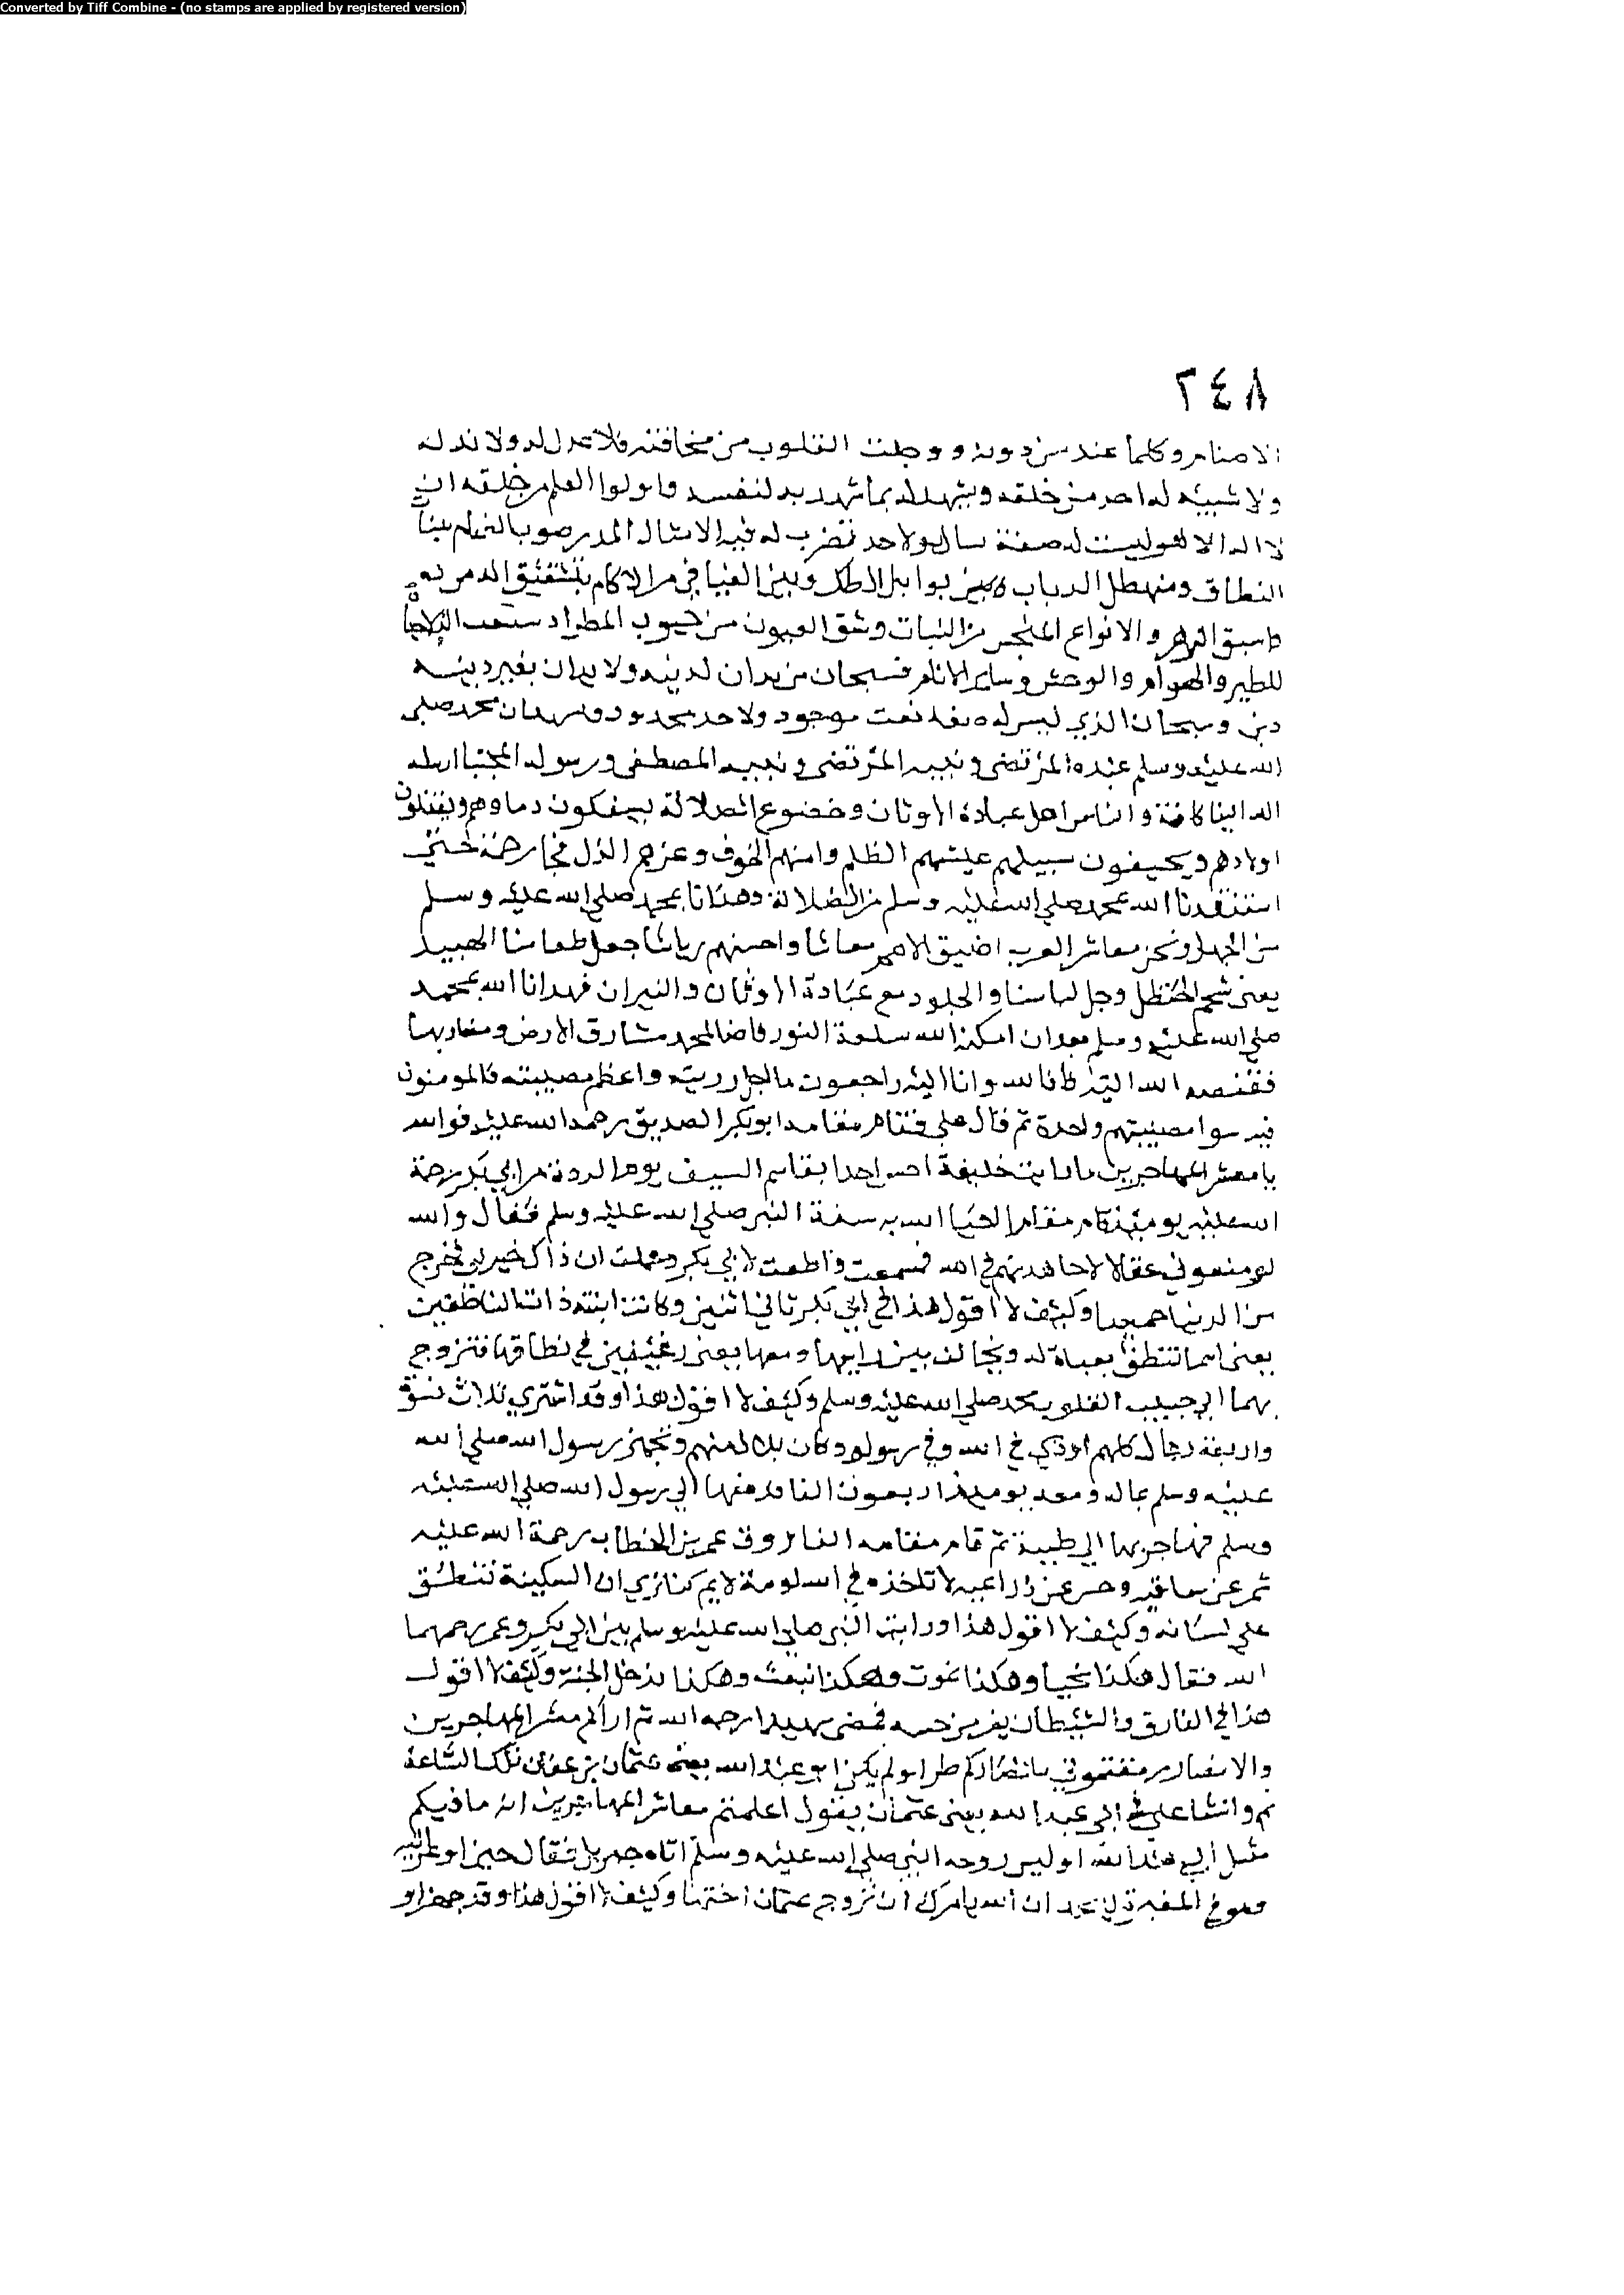 Converted by Tiff Combine - (no stamps are applied by registered version)
٢٤٨
الاصنام وكلما عند من دونه ووجلت القلوب من مخافته فلا عدل له ولا ند له
ولا شبيه له احد من خلقه ويشهد له بما شهد به لنفسه واولوا العلم من خلقه ان
لا اله الا هو ليست له صفة ولا حد تضرب له فيه الامثال
النطاق ومنهطل الرباب بوابل الطل الاكام بتشقيق
والانواع من النبات وشق العيون من جيوب المطر
للطير والهوام والوحش وساير الانام فسبحان من يدان لدينه ولا يدان بغير دينه
دين وسبحان الذي ليس له نعت موجود ولا حد محدود محمد صلى
الله عليه وسلم عبده المرتضى ونبيه المرتضى ونجيبه المصطفى ورسوله المجتبا ارسله
الله الينا كافة والناس اهل عبادة الاوثان وخضوع الضلالة يسفكون دماوهم ويقتلون
اولادهم ويحيفون سبيلهم عيشهم الظلم وامنهم الخوف وعزهم الذل حتى
استنقذنا الله بمحمد صلى الله عليه وسلم من الضلالة وهدانا بمحمد صلى الله عليه وسلم
من الجهل ونحن معاشر العرب اضيق الامم معاشا واحسنهم رياشا جعل طعامنا الهبيد
يعني شحم الحنظل وجل لباسنا والجلود مع عبادة الاوثان والنيران فهدانا الله بمحمد
صلى الله عليه وسلم بعد ان امكنه الله النور فاضا بمحمد مشارق الارض ومغاربها
فقبضه الله اليه فانا لله وانا اليه راجعون ما اجل رزيته واعظم مصيبته فالمومنون
فيه سوا مصيبتهم واحدة ثم قال علي فقام مقامه ابو بكر الصديق رحمة الله عليه فوالله
يا معشر المهاجرين ما رايت خليفة احسن اخذا بقايم السيف يوم الردة من ابي بكر رحمة
الله عليه يومئذ قام مقاما احيا الله به سنة النبي صلى الله عليه وسلم فقال والله
لو منعوني عقالا لاجاهدنهم في الله فسمعت واطعت لابي بكر وعملت ان ذاك خير لي فخرج
من الدنيا خميصا وكيف لا اقول هذا في ابي بكر ثاني اثنين وكانت ابنته ذات النطاقين
يعني اسما تتنطق بعباة له وتخالف بين راسها ومعها يعني رغيفين في نطاقها فتزوج
بهما الى حبيب القلوب محمد صلى الله عليه وسلم وكيف لا اقول هذا وقد اشترى ثلاث نسوة
واربعة رجال كلهم اوذي في الله وفي رسوله وكان بلال منهم وتجهز رسول الله صلى الله
عليه وسلم بماله ومعه يوميذ اربعون الفا فدفعها الى رسول الله صلى الله عليه
وسلم فهاجر بها الى طيبة ثم قام مقامه الفاروق عمر بن الخطاب رحمة الله عليه
شمر عن ساقيه وحسر عن ذراعيه لا تاخذه في الله لومة لايم كنا نرى ان السكينة تنطق
على لسانه وكيف لا اقول هذا ورايت النبي صلى الله عليه وسلم بين ابي بكر وعمر رحمهما
الله فقال هكذا نحيا وهكذا نموت وهكذا نبعث وهكذا ندخل الجنة وكيف لا اقول
هذا في الفارق والشيطان يفر من حسه فمضى شهيدا رحمه الله ثم اراكم معشر المهاجرين
والانصار بابصاركم طرا ولم يكن ابو عبد الله يعني عثمان بن عفان تلك الساعة
ثم وانشا علي في ابي عبد الله يعني عثمان يقول اعلمتم معاشر المهاجرين انه ما فيكم
مثل ابي عبد الله اوليس زوجه النبي صلى الله عليه وسلم اتاه جبريل فقال حين
وهو في المقبرة يا محمد ان الله يامرك ان تزوج عثمان اختها وكيف لا اقول هذا وقد جهز